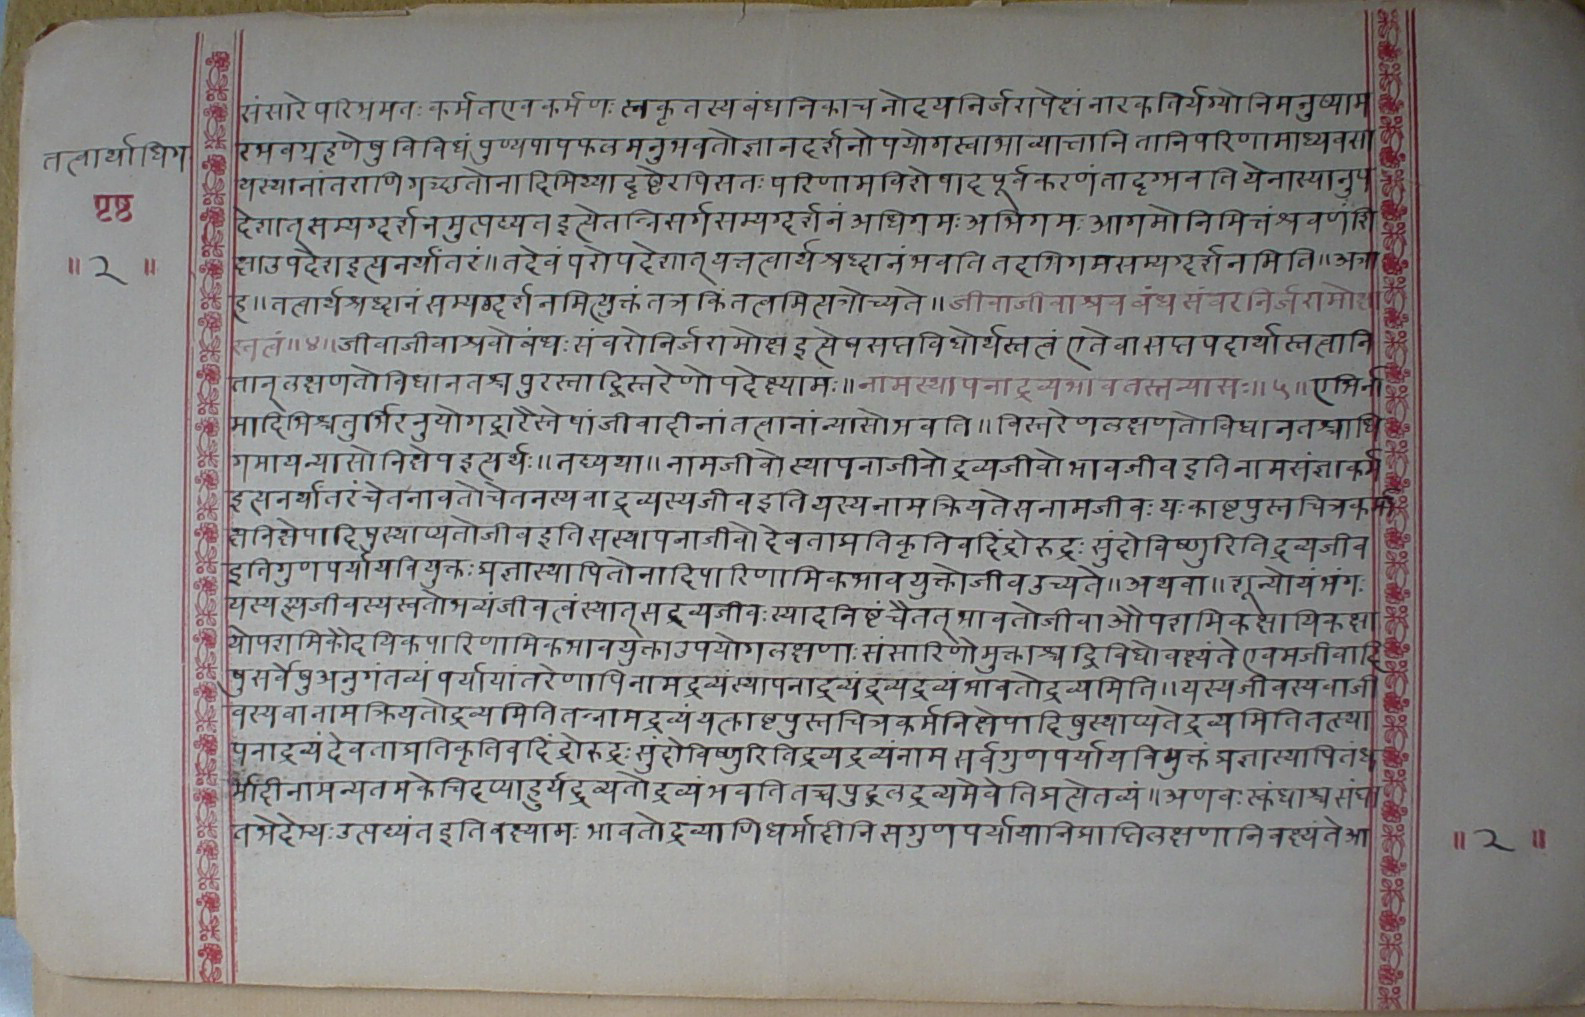 तत्वार्थाधिग
पृष्ठ
॥ २ ॥
संसारे परिभ्रमतः कर्मतएव कर्मणः स्वकृतस्य बंधनिकाचनोदयनिर्जरापेक्षं नारकतिर्यग्योनिमनुष्याम
रभवग्रहणेषु विविधं पुण्यपापफलमनुभवतो ज्ञानदर्शनोपयोगस्वाभाव्यात्तानि तानि परिणामाध्यवसा
यस्थानांतराणि गच्छतो नादिमिथ्यादृष्टेरपि सतः परिणामविशेषादपूर्वकरणं तादृग्भवति येनास्यानुप
देशात् सम्यग्दर्शनमुत्पद्यत इत्येतन्निसर्गसम्यग्दर्शनं अधिगमः अभिगमः आगमो निमित्तं श्रवणं शि
क्षा उपदेश इत्यनर्थांतरं॥ तदेवं परोपदेशात् यत्तत्वार्थश्रद्धानं भवति तदभिगमसम्यग्दर्शनमिति॥ अत्रा
ह॥ तत्वार्थश्रद्धानं सम्यग्दर्शनमित्युक्तं तत्र किं तत्वमित्यत्रोच्यते॥ जीवाजीवाश्रवबंधसंवरनिर्जरामोक्षा
स्तत्वं॥४॥ जीवाजीवाश्रवोबंधः संवरोनिर्जरामोक्ष इत्येष सप्तविधोर्थस्तत्वं एते वा सप्तपदार्थास्तत्वानि
तान् लक्षणतो विधानतश्च पुरस्ताद्विस्तरेणोपदेक्ष्यामः॥ नामस्थापनाद्रव्यभावतस्तन्यासः॥५॥ एभिर्ना
मादिभिश्चतुर्भिरनुयोगद्वारैस्तेषां जीवादीनां तत्वानां न्यासो भवति॥ विस्तरेण लक्षणतो विधानतश्चाधि
गमाय न्यासो निक्षेप इत्यर्थः॥ तद्यथा॥ नामजीवो स्थापनाजीवो द्रव्यजीवो भावजीव इति नामसंज्ञाकर्म
इत्यनर्थांतरं चेतनावतोचेतनस्य वा द्रव्यस्य जीव इति यस्य नाम क्रियते स नामजीवः यः काष्टपुस्तचित्रकर्मा
क्षनिक्षेपादिषु स्थाप्यतो जीव इति स स्थापनाजीवो देवताप्रतिकृतिवदिंद्रो रुद्रः स्कंदो विष्णुरिति द्रव्यजीव
इति गुणपर्यायवियुक्तः प्रज्ञास्थापितो नादिपारिणामिकभावयुक्तो जीव उच्यते॥ अथवा॥ शून्योयं भंगः
यस्य ह्यजीवस्य सतो भव्यं जीवत्वं स्यात् स द्रव्यजीवः स्यादनिष्टं चैतत् भावतो जीवा औपशमिकक्षायिकक्षा
योपशमिकौदयिकपारिणामिकभावयुक्ता उपयोगलक्षणाः संसारिणो मुक्ताश्च द्विविधो वक्ष्यंते एवमजीवादि
षु सर्वेषु अनुगंतव्यं पर्यायांतरेणापि नामद्रव्यं स्थापनाद्रव्यं द्रव्यद्रव्यं भावतोद्रव्यमिति॥ यस्य जीवस्य वाजी
वस्य वा नाम क्रियतो द्रव्यमिति तन्नामद्रव्यं यत्काष्टपुस्तचित्रकर्मनिक्षेपादिषु स्थाप्यते द्रव्यमिति तत्स्था
पनाद्रव्यं देवताप्रतिकृतिवदिंद्रो रुद्रः स्कंदो विष्णुरिति द्रव्यद्रव्यं नाम सर्वगुणपर्यायवियुक्तं प्रज्ञास्थापितं ध
र्मादीनामन्यतम केचिदप्याहुर्यद्रव्यतो द्रव्यं भवति तच्च पुद्गलद्रव्यमेवेति प्रत्येतव्यं॥ अणवः स्कंधाश्च संघा
तभेदेभ्यः उत्पद्यंत इति वक्ष्यामः भावतो द्रव्याणि धर्मादीनि सगुणपर्यायानि प्राप्तिलक्षणानि वक्ष्यंते आ
॥ २ ॥